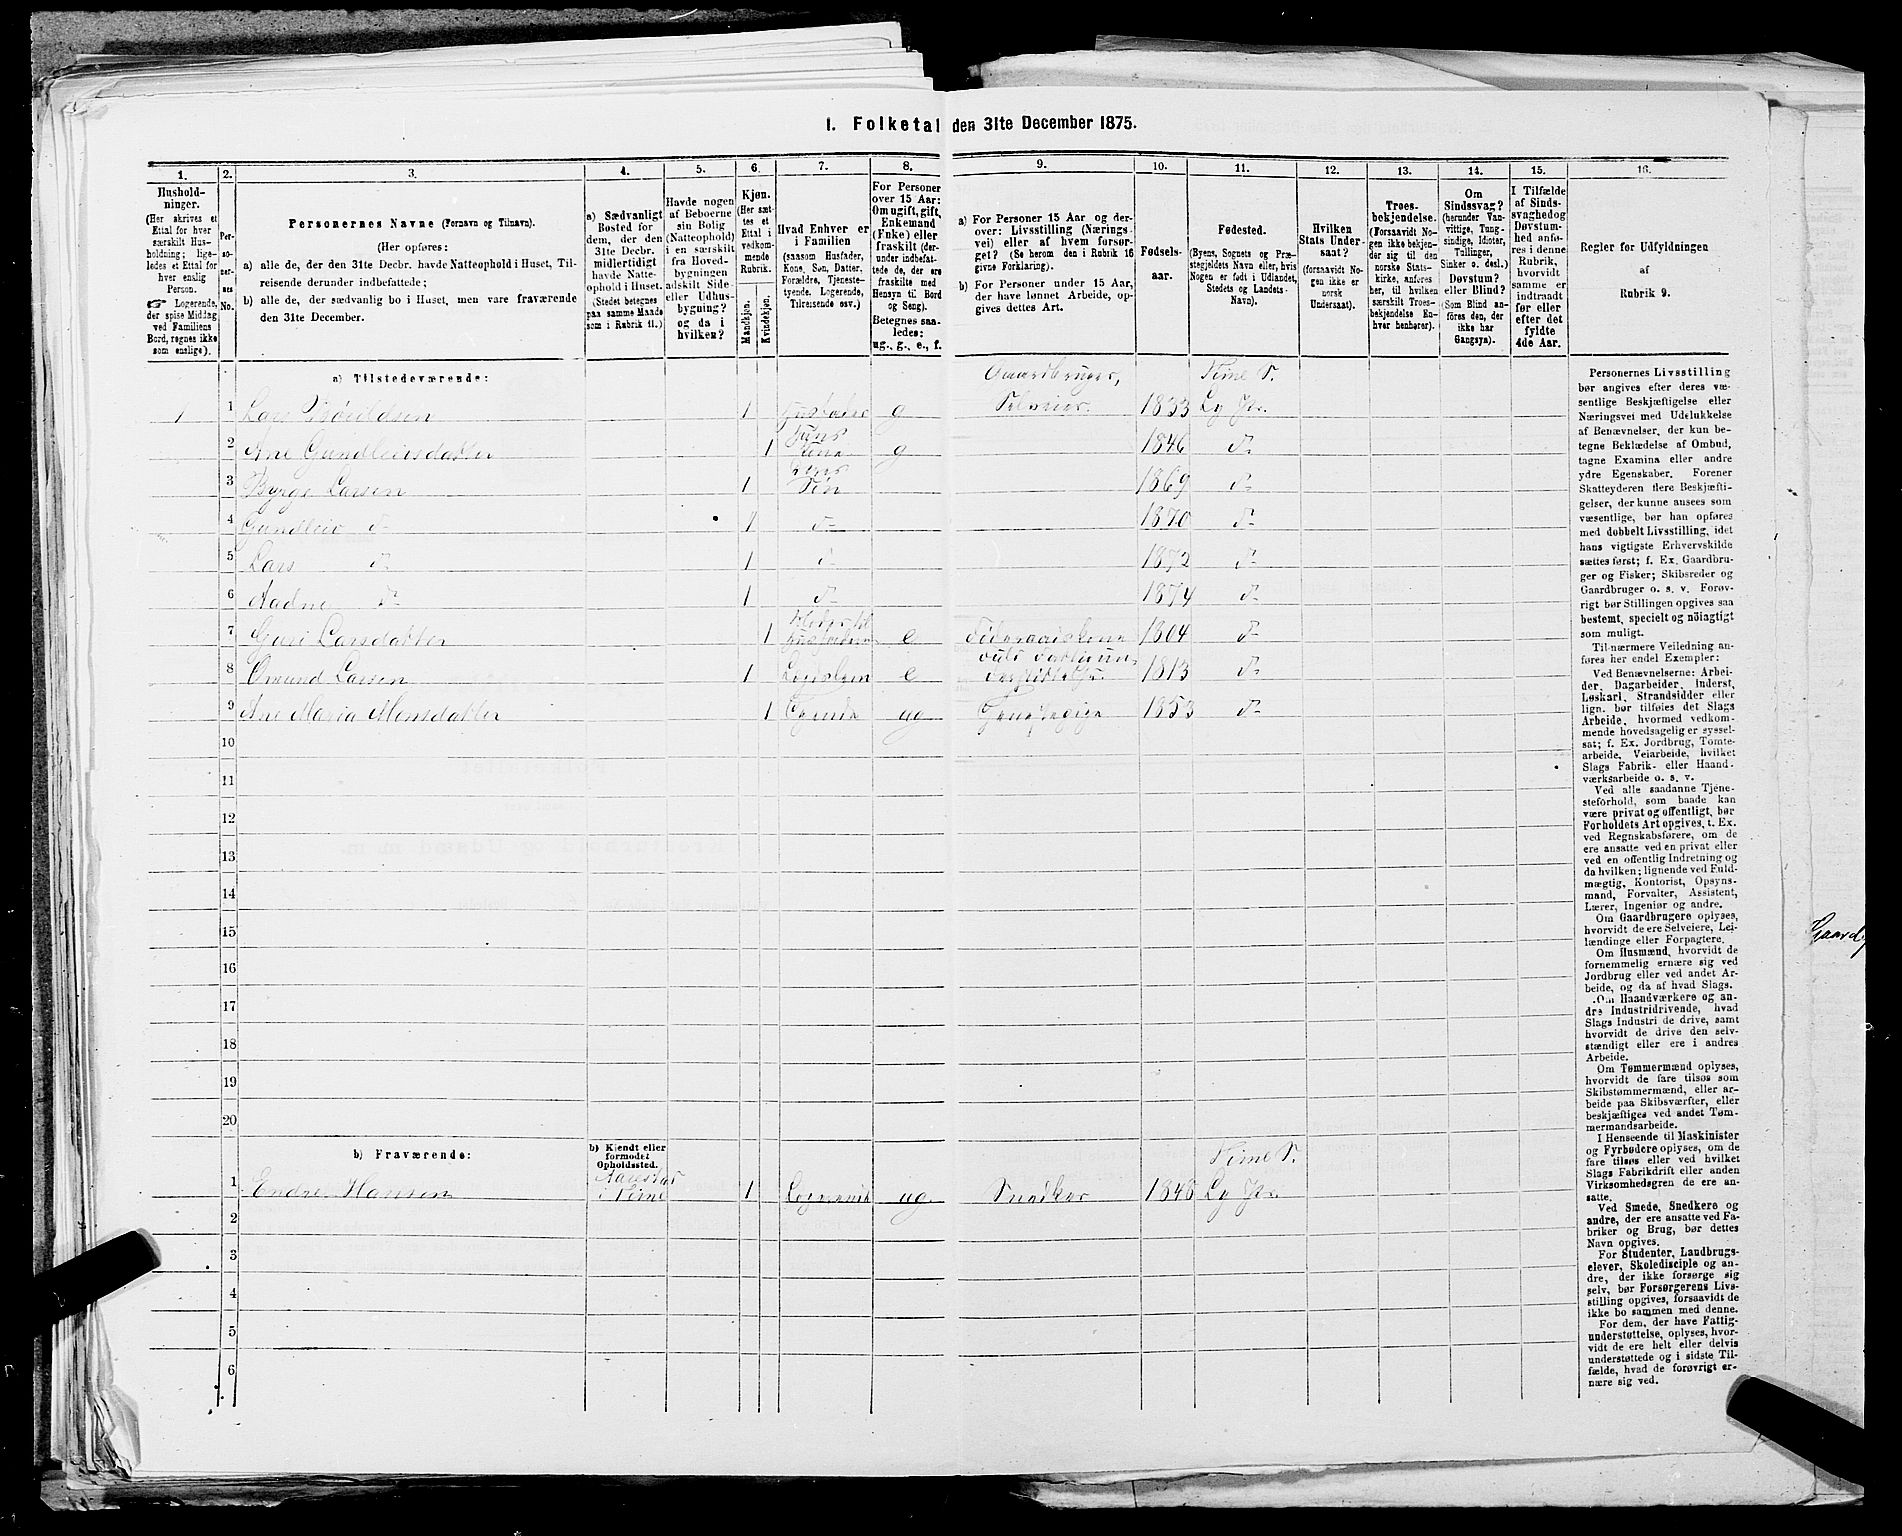 I. Folketal den 31te December 1875.
1.
Hushold-
ninger.
(Her skrives et
Ettal for hver
særskilt Hus-
holdning; lige-
ledes et Ettal for
hver enslig
Person.
☞ Logerende,
der spise Middag
ved Familiens
Bord, regnes ikke
som enslige).
2.
Per-
so-
ner-
nes
No.
3.
Personernes Navne (Fornavn og Tilnavn).
(Her opføres:
a) alle de, der den 31te Decbr. havde Natteophold i Huset, Til-
reisende derunder indbefattede;
b) alle de, der sædvanlig bo i Huset, men vare fraværende
den 31te December.
4.
a) Sædvanligt
Bosted for
dem, der den
31te Decbr.
midlertidigt
havde Natte-
ophold i Huset.
(Stedet betegnes
paa samme Maade
som i Rubrik 11.)
5.
Havde nogen
af Beboerne
sin Bolig
(Natteophold)
i en særskilt
fra Hoved-
bygningen
adskilt Side-
eller Udhus-
bygning?
og da i
hvilken?
6.
Kjøn.
(Her sæt-
tes et
Ettal i
vedkom-
mende
Rubrik.
Mandkjøn.
Kvindekjøn.
7.
Hvad Enhver er
i Familien
(saasom Husfader,
Kone, Søn, Datter,
Forældre, Tjeneste-
tyende, Logerende,
Tilreisende osv.)
8.
For Personer
over 15 Aar:
Om ugift, gift,
Enkemand
(Enke) eller
fraskilt (der-
under indbefat-
tede de, der ere
fraskilte med
Hensyn til Bord
og Seng).
Betegnes saa-
ledes:
ug., g., e., f.
9.
a) For Personer 15 Aar og der-
over: Livsstilling (Nærings-
vei) eller af hvem forsør-
get? (Se herom den i Rubrik 16
givne Forklaring).
b) For Personer under 15 Aar,
der have lønnet Arbeide, op-
gives dettes Art.
10.
Fødsels-
aar.
11.
Fødested.
(Byens, Sognets og Præ-
stegjeldets Navn eller, hvis
Nogen er født i Udlandet,
Stedets og Landets
Navn).
12.
Hvilken
Stats Under-
saat?
(forsaavidt No-
gen ikke er
norsk
Undersaat).
13.
Troes-
bekjendelse.
(Forsaavidt No-
gen ikke bekjen-
der sig til den
norske Stats-
kirke, anføres
her, til hvilken
særskilt Troes-
bekjendelse En-
hver henhører).
14.
Om
Sindssvag?
(herunder Van-
vittige, Tung-
sindige, Idioter,
Tullinger,
Sinker o. desl.)
Døvstum?
eller Blind?
(Som Blind an-
føres den, der
ikke har
Gangsyn).
15.
I Tilfælde
af Sinds-
svaghed og
Døvstum-
hed anfø-
res i denne
Rubrik,
hvorvidt
samme er
indtraadt
før eller
efter det
fyldte
4de Aar.
16.
Regler for Udfyldningen
af
Rubrik 9.
a) Tilstedeværende:
Gaardbruger, Time S.
1 1 Lars 1 Husfader g Selveier. 1833 Ly Pr.
2 Ane Gundleivsdatter 1 Hans Kone g 1846 d-
3 Børge Larsen 1 Søn 1869 d-
4 Gundleiv d- 1 d- 1870 d-
5 Lars d- 1 d- 1872 d-
6 Aadne d- 1 d- 1874 d-
7 Guri Larsdatter 1 Moder til Husfaderen e Føderaadskone 1804 d-
8 Omund Larsen 1 Lægdslem e 1813 d-
9 Ane Maria Monsdatter 1 ug 1853 d-
10
11
12
13
14
15
16
17
18
19
20
b) Fraværende:
b) Kjendt eller
formodet
Opholdssted.
Time S.
1 Endre Hansen i Time 1 Logerende ug Snedker 1848 Ly Pr.
2
3
4
5
6
Personernes Livsstilling
bør angives efter deres væ-
sentlige Beskjæftigelse eller
Næringsvei med Udelukkelse
af Benævnelser, der kun be-
tegne Beklædelse af Ombud,
tagne Examina eller andre
ydre Egenskaber. Forener
Skatteyderen flere Beskjæfti-
gelser, der kunne ansees som
væsentlige, bør han opføres
med dobbelt Livsstilling, idet
hans vigtigste Erhvervskilde
sættes først; f. Ex. Gaardbru-
ger og Fisker; Skibsreder og
Gaardbruger o. s. v. Forøv-
rigt bør Stillingen opgives saa
bestemt, specielt og nöiagtigt
som muligt.
Til nærmere Veiledning an-
føres her endel Exempler:
Ved Benævnelserne: Arbei-
der, Dagarbeider, Inderst,
Løskarl, Strandsidder eller
lign. bør tilføies det Slags
Arbeide, hvormed vedkom-
mende hovedsagelig er syssel-
sat; f. Ex. Jordbrug, Tomte-
arbeide, Veiarbeide, hvilket
Slags Fabrik- eller Haand-
værksarbeide o. s. v.
Ved alle saadanne Tjene-
steforhold, som baade kan
være privat og offentligt, bør
Forholdets Art opgives, t. Ex.
ved Regnskabsførere, om de
ere ansatte ved en privat eller
ved en offentlig Indretning og
da hvilken; lignende ved Fuld-
mægtig, Kontorist, Opsyns-
mand, Forvalter, Assistent,
Lærer, Ingeniør og andre.
Om Gaardbrugere oplyses,
hvorvidt de ere Selveiere, Lei-
lændinge eller Forpagtere.
Om Husmænd, hvorvidt de
fornemmelig ernære sig ved
Jordbrug eller ved andet Ar-
beide, og da af hvad Slags.
Om Haandværkere og an-
dre Industridrivende, hvad
Slags Industri de drive, samt
hvorvidt de drive den selv-
stændigt eller ere i andres
Arbeide.
Om Tømmermænd oplyses,
hvorvidt de fare tilsøs som
Skibstømmermænd, eller ar-
beide paa Skibsværfter, eller
beskjæftiges ved andet Tøm-
mermandsarbeide.
I Henseende til Maskinister
og Fyrbødere oplyses, om de
fare tilsøs eller ved hvilket
Slags Fabrikdrift eller anden
Virksomhedsgren de ere an-
satte.
Ved Smede, Snedkere og
andre, der ere ansatte ved Fa-
briker og Brug, bør dettes
Navn opgives.
For Studenter, Landbrugs-
elever, Skoledisciple og an-
dre, der ikke forsørge sig
selv, bør Forsørgerens Livs-
stilling opgives, forsaavidt de
ikke bo sammen med denne.
For dem, der have Fattig-
understøttelse, oplyses, hvor-
vidt de ere helt eller delvis
understøttede og i sidste Til-
fælde, hvad de forøvrigt er-
nære sig ved.